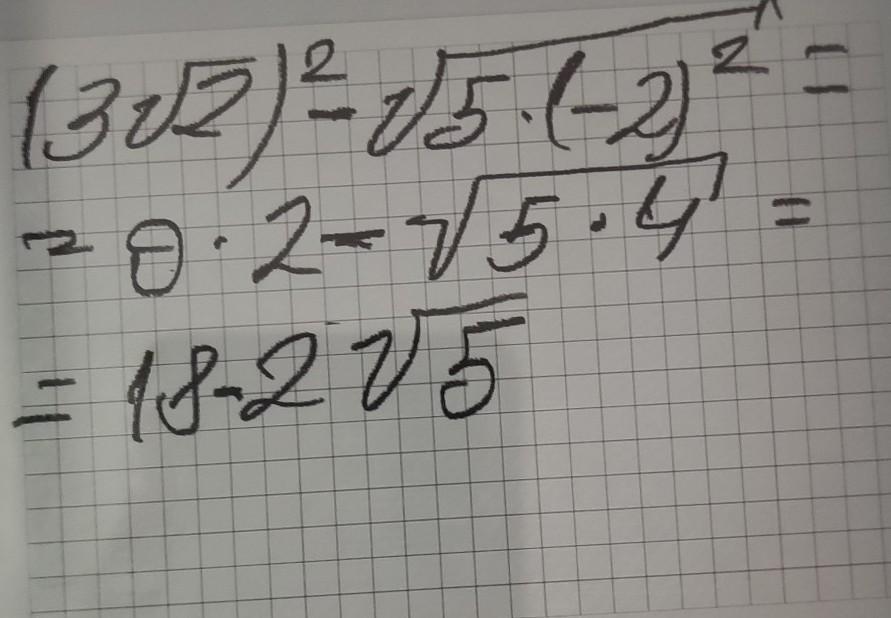 (3√2)² - √(5·(-2)²) =
= 9·2 - √(5·4) =
= 18 - 2√5